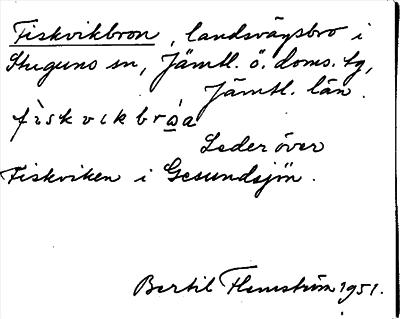 Fiskvikbron, landsvägsbro i
Stuguns sn, Jämtl. ö. doms. tg,
Jämtl. län.
fìskvikbróa
Leder över
Fiskviken i Gesundsjön.
Bertil Flemström 1951.